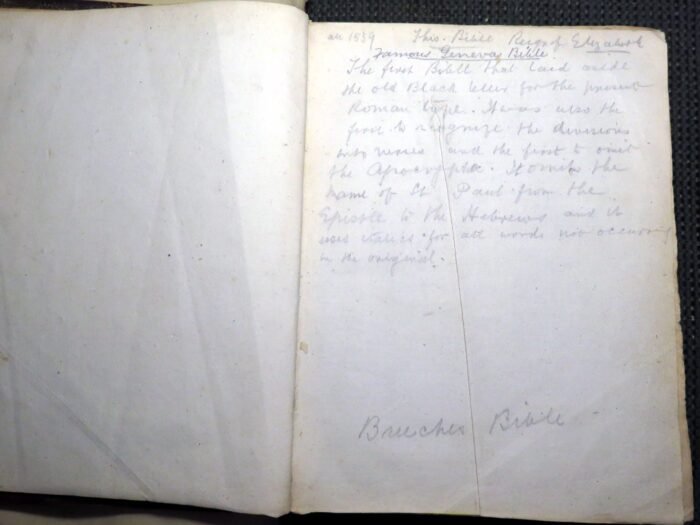 an 1559 This Bible Reign of Elizabeth
Famous Geneva Bible.
The first Bible that laid aside
the old Black letter for the present
Roman type. It was also the
first to recognize the divisions
into verses and the first to omit
the Apocrypha. It omits the
name of St Paul from the
Epistle to the Hebrews and it
uses italics for all words not occurring
in the original.
Breeches Bible